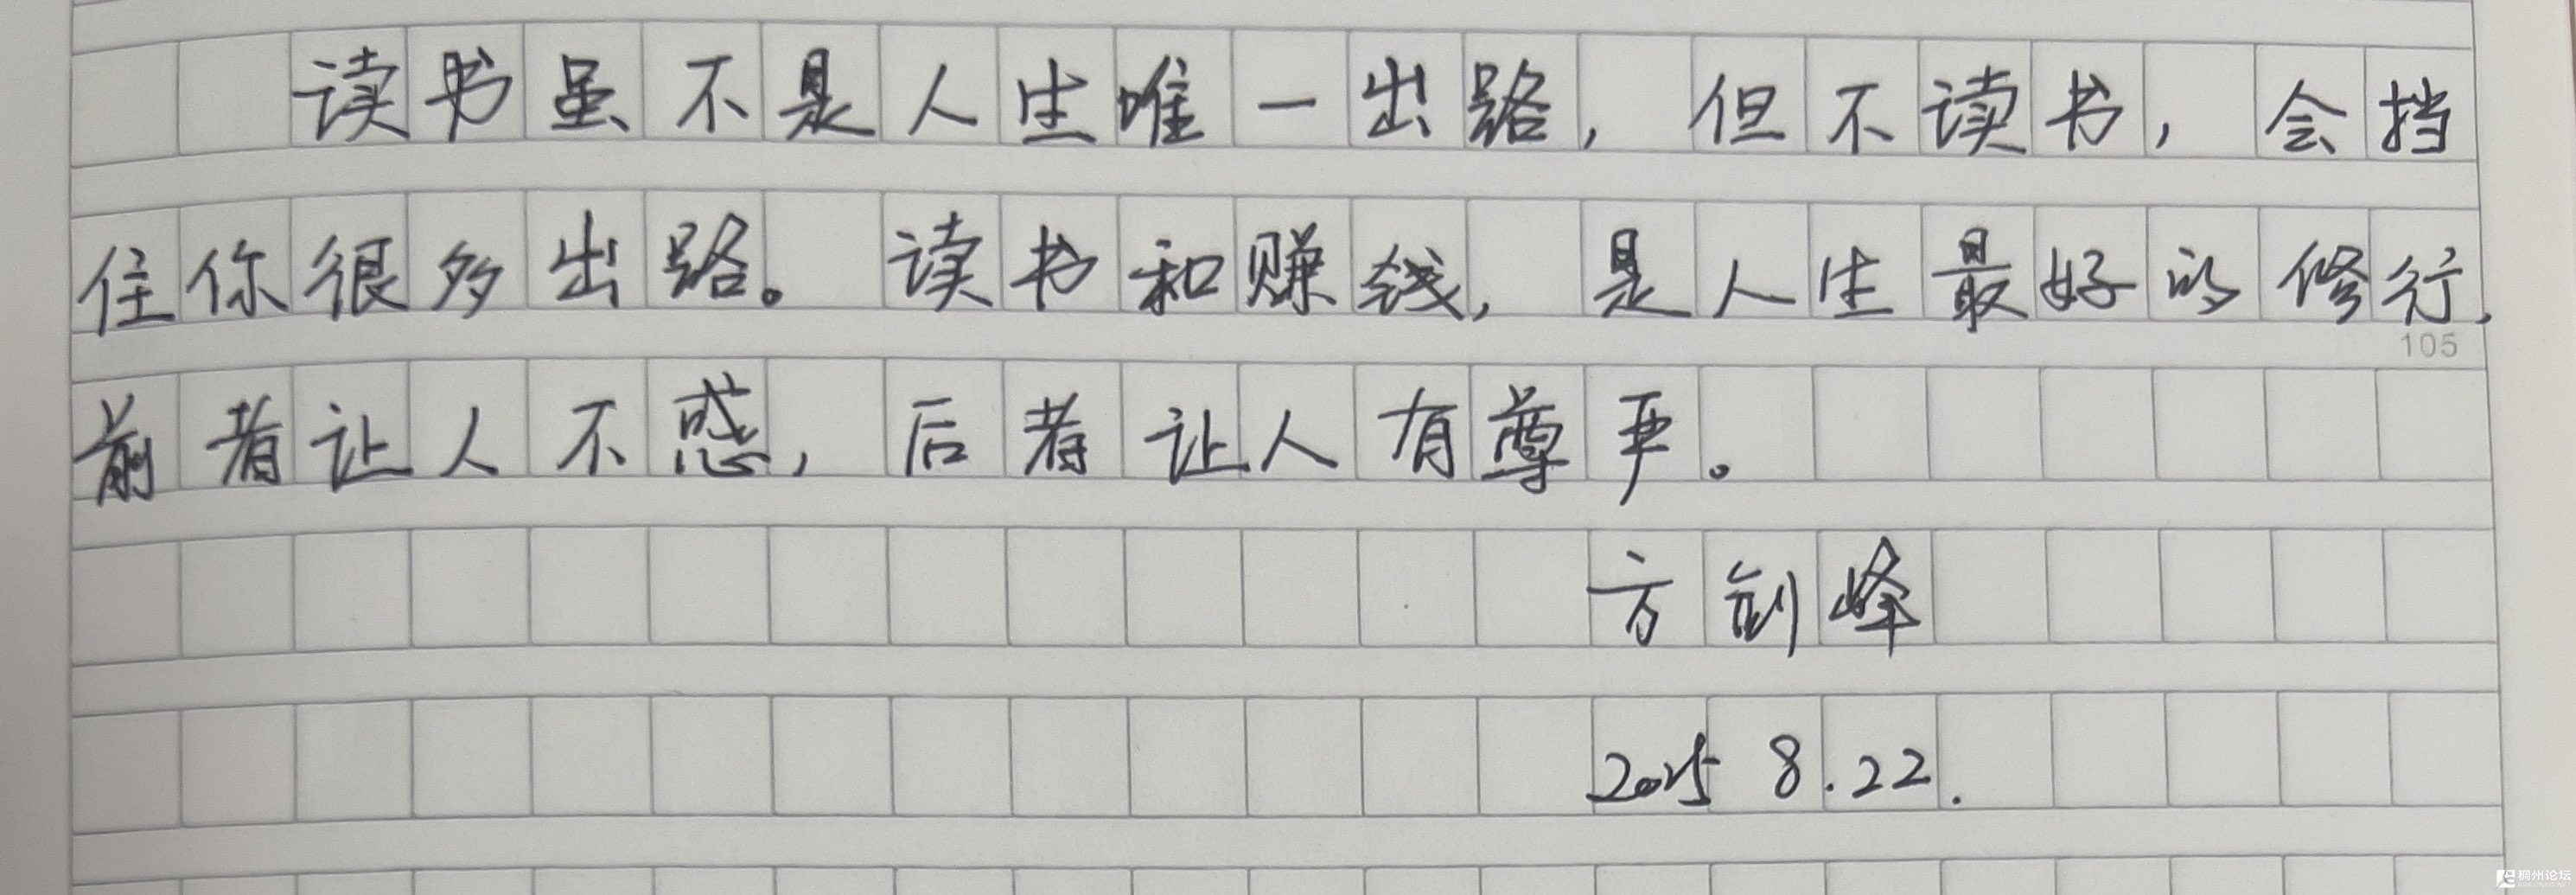 读书虽不是人生唯一出路，但不读书，会挡
住你很多出路。读书和赚钱，是人生最好的修行，
105
前者让人不惑，后者让人有尊严。
方剑峰
2025 8.22.
稠州论坛